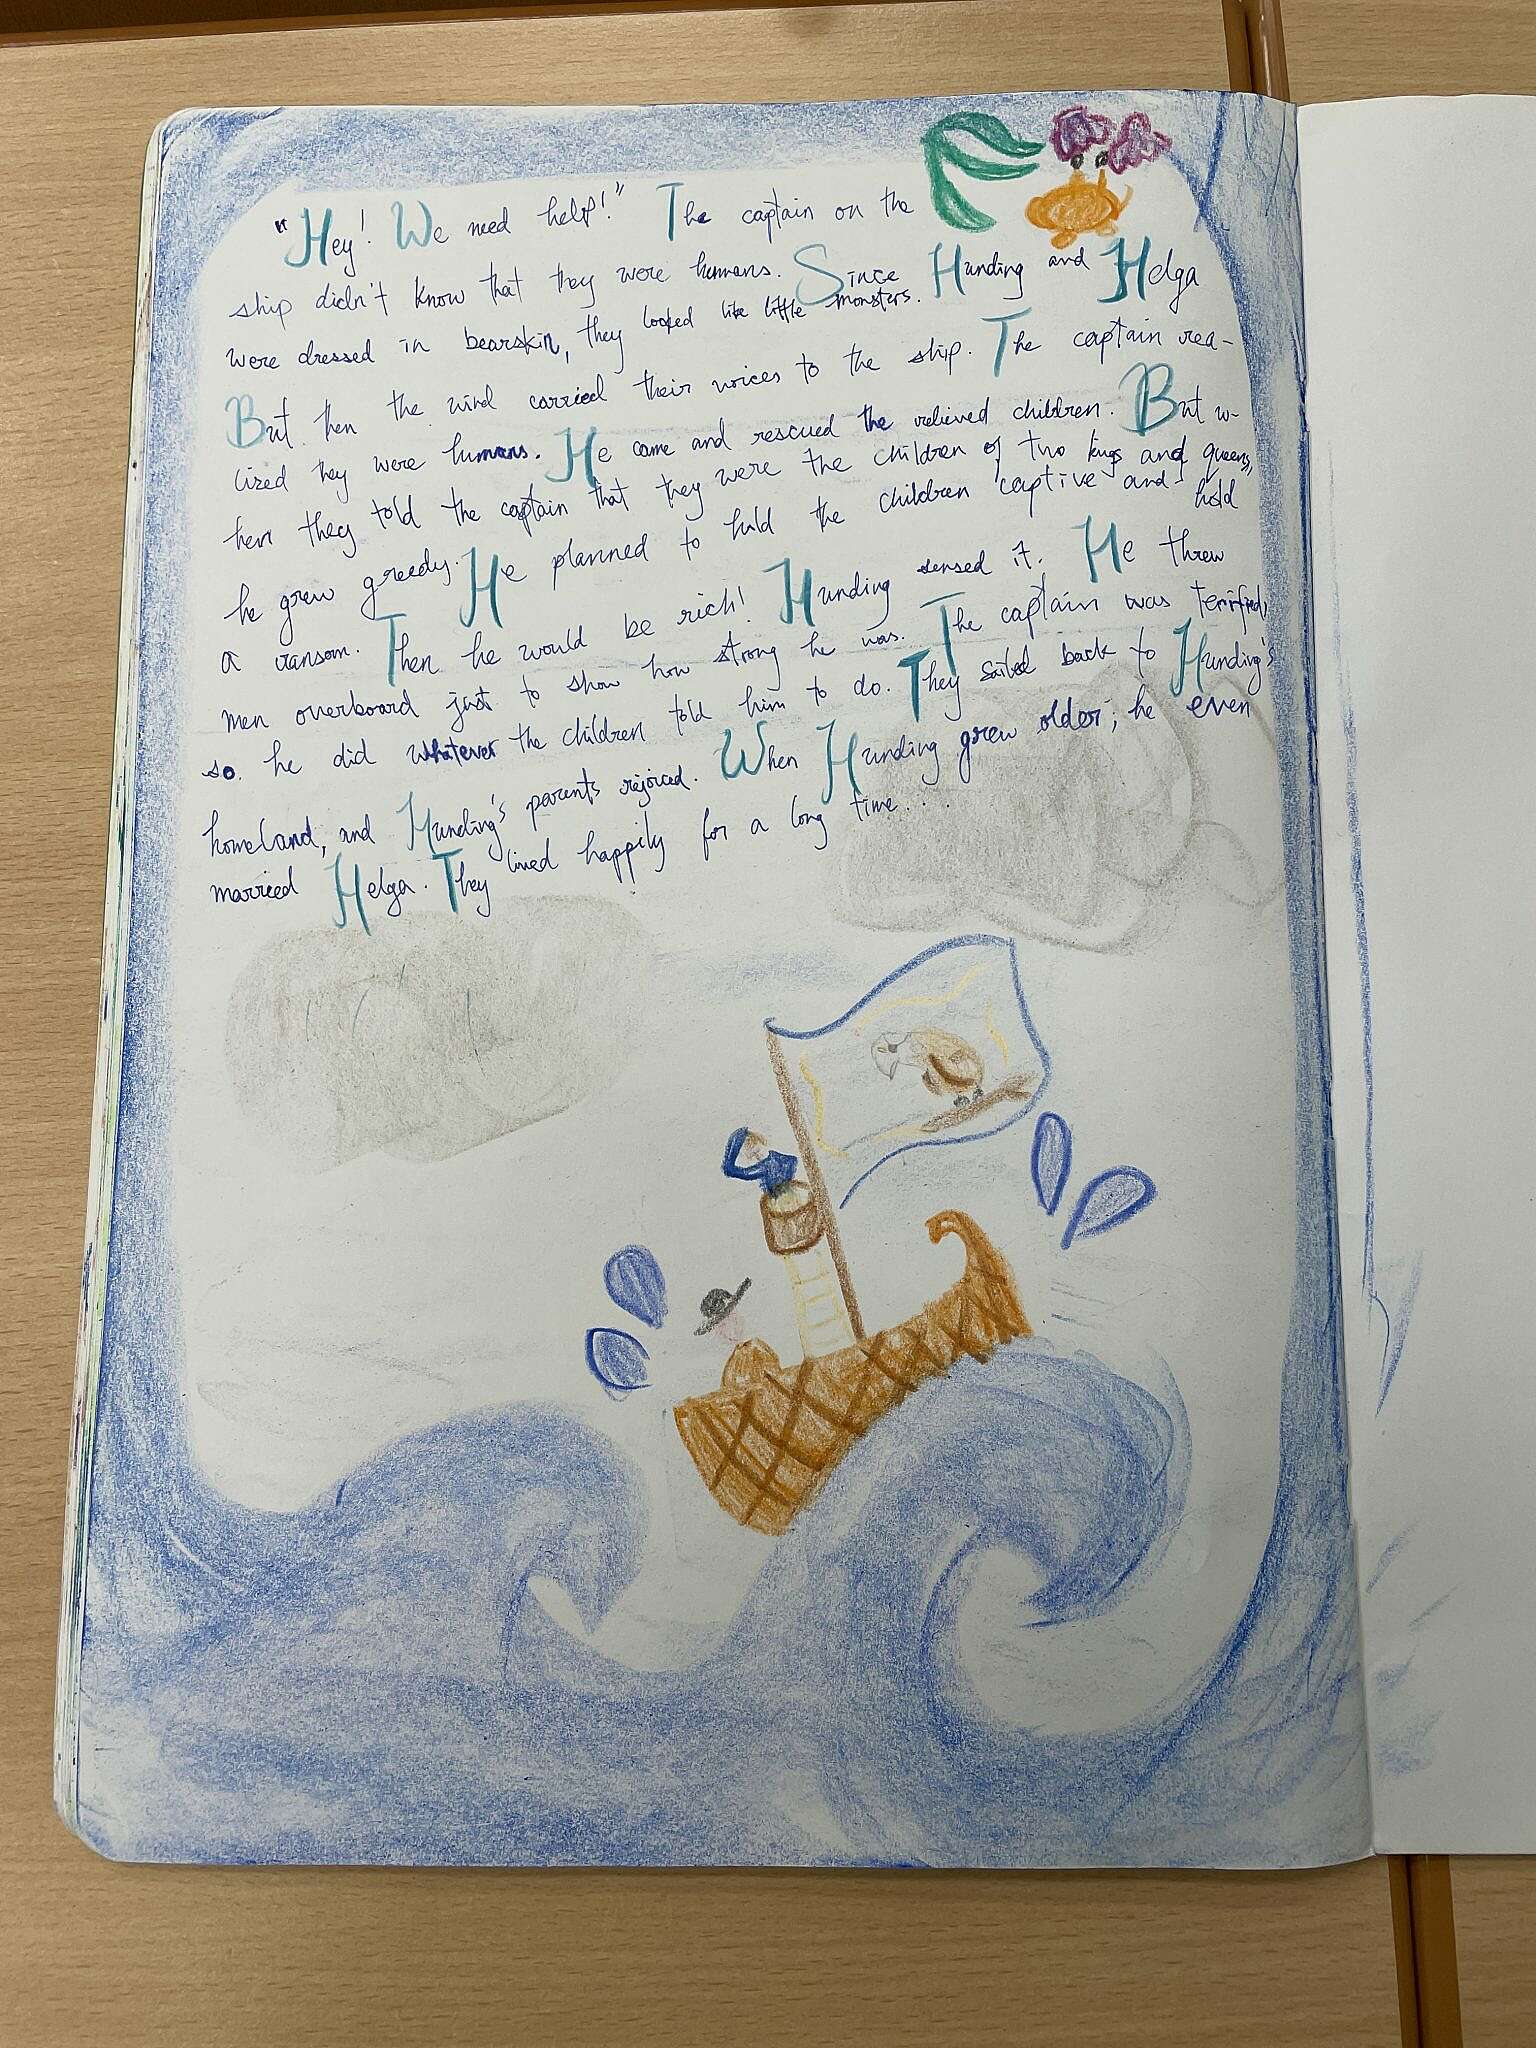 "Hey! We need help!" The captain on the
ship didn't know that they were humans. Since Hunding and Helga
were dressed in bearskin, they looked like little monsters.
But then the wind carried their voices to the ship. The captain rea-
lized they were humans. He came and rescued the relieved children. But w-
hen they told the captain that they were the children of two kings and queens,
he grew greedy. He planned to hold the children captive and hold
a ransom. Then he would be rich! Hunding sensed it. He threw
men overboard just to show how strong he was. The captain was terrified,
so he did whatever the children told him to do. They sailed back to Hunding's
homeland, and Hunding's parents rejoiced. When Hunding grew older, he even
married Helga. They lived happily for a long time...